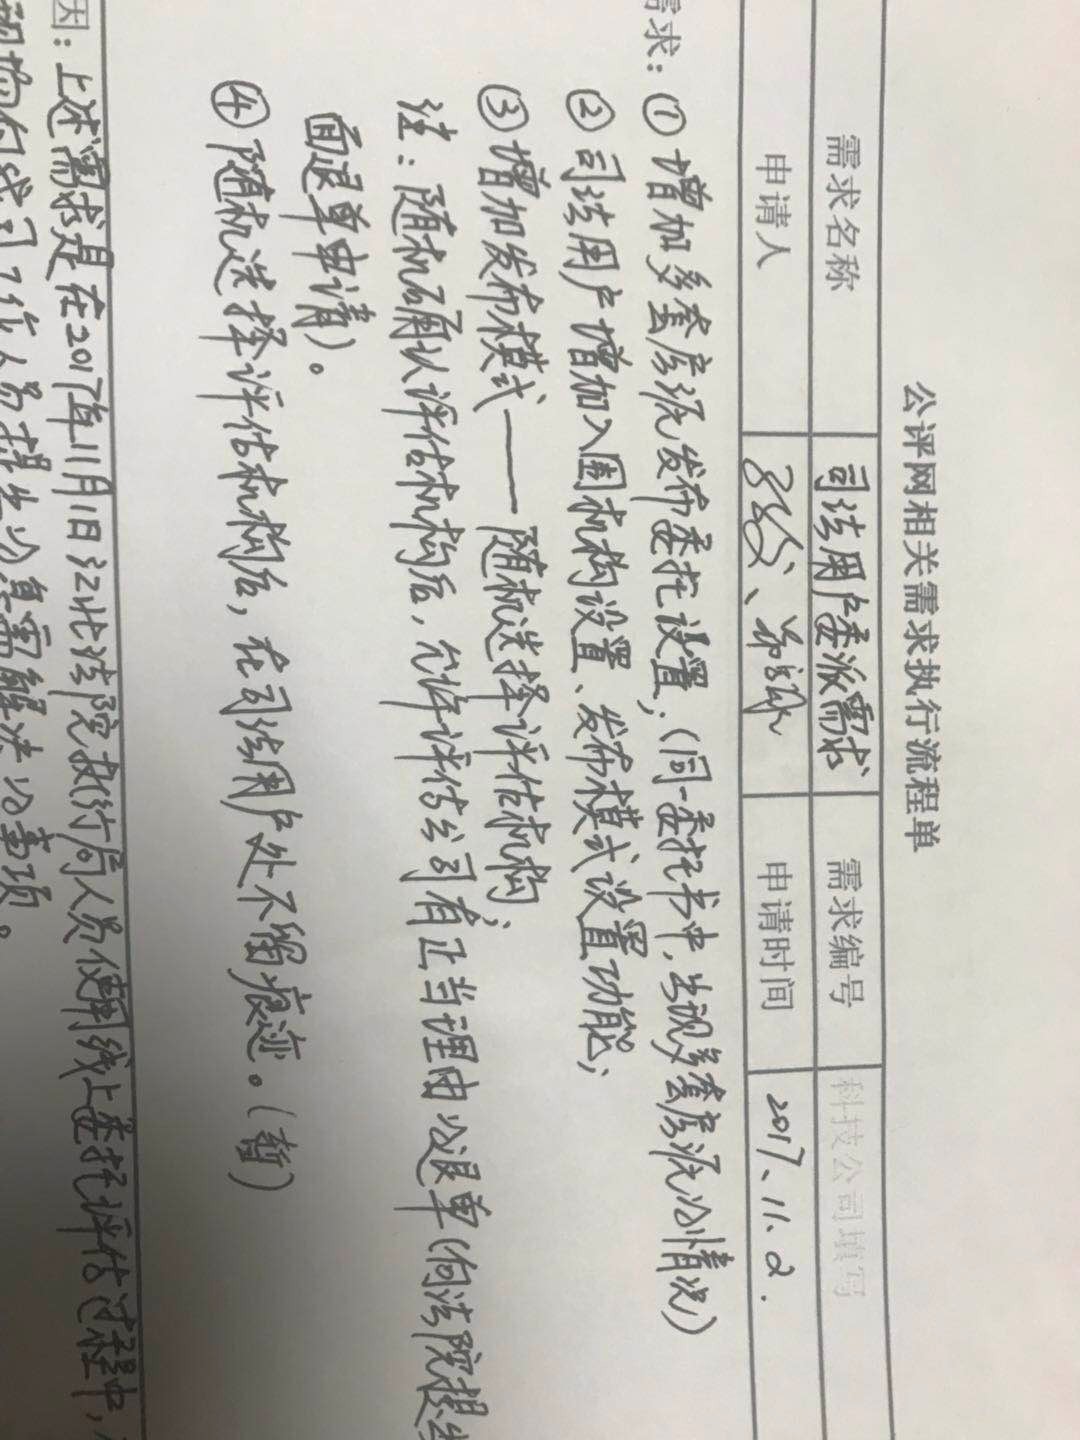 公评网相关需求执行流程单
需求名称 司法用户委派需求 需求编号 科技公司填写
申请人 申请时间 2017、11、2.
需求：①增加多套房源发布委托设置；（同一委托书中，出现多套房源的情况）
②司法用户增加入围机构设置、发布模式设置功能；
③增加发布模式——随机选择评估机构；
注：随机确认评估机构后，允许评估公司有正当理由的退单（向法院提出
面退单申请）。
④随机选择评估机构后，在司法用户处不留痕迹。（暂）
因：上述需求是在2017年11月1日江北法院执行局人员使用线上委托评估过程中，
现场向我司工作人员提出的急需解决的事项。